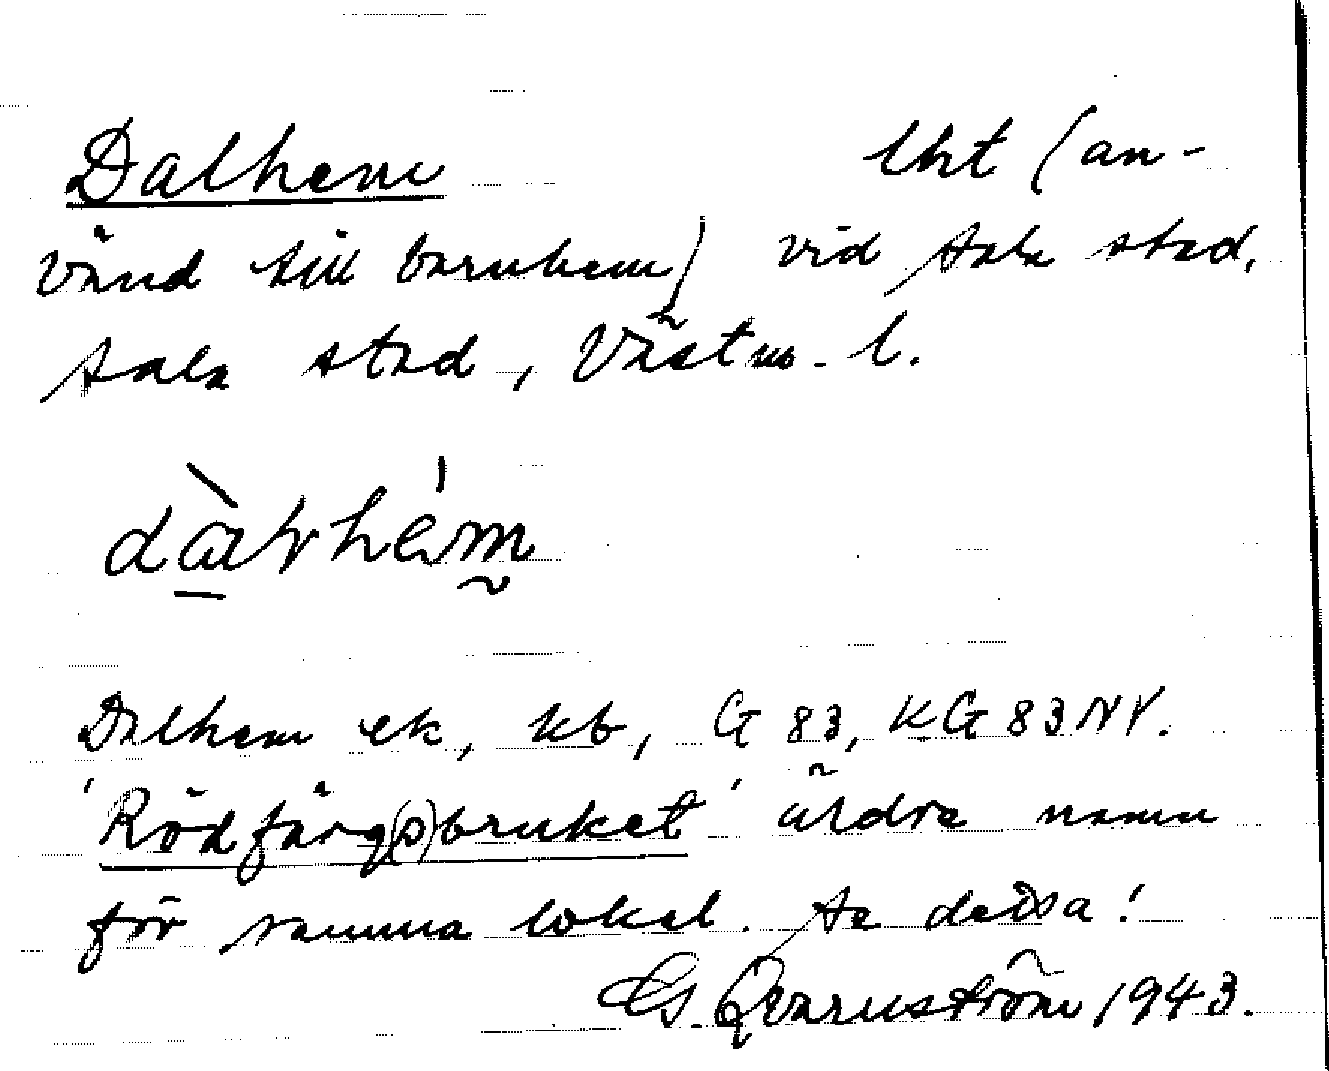 Dalhem lht (an-
vänd till barnhem) vid Sala stad,
Sala stad, Västm. l.
Dalhem ek, kb, G 83, KG 83 NV.
'Rödfärg(s)bruket' äldre namn
för samma lokal. Se dessa!
G. Qvarnström 1943.